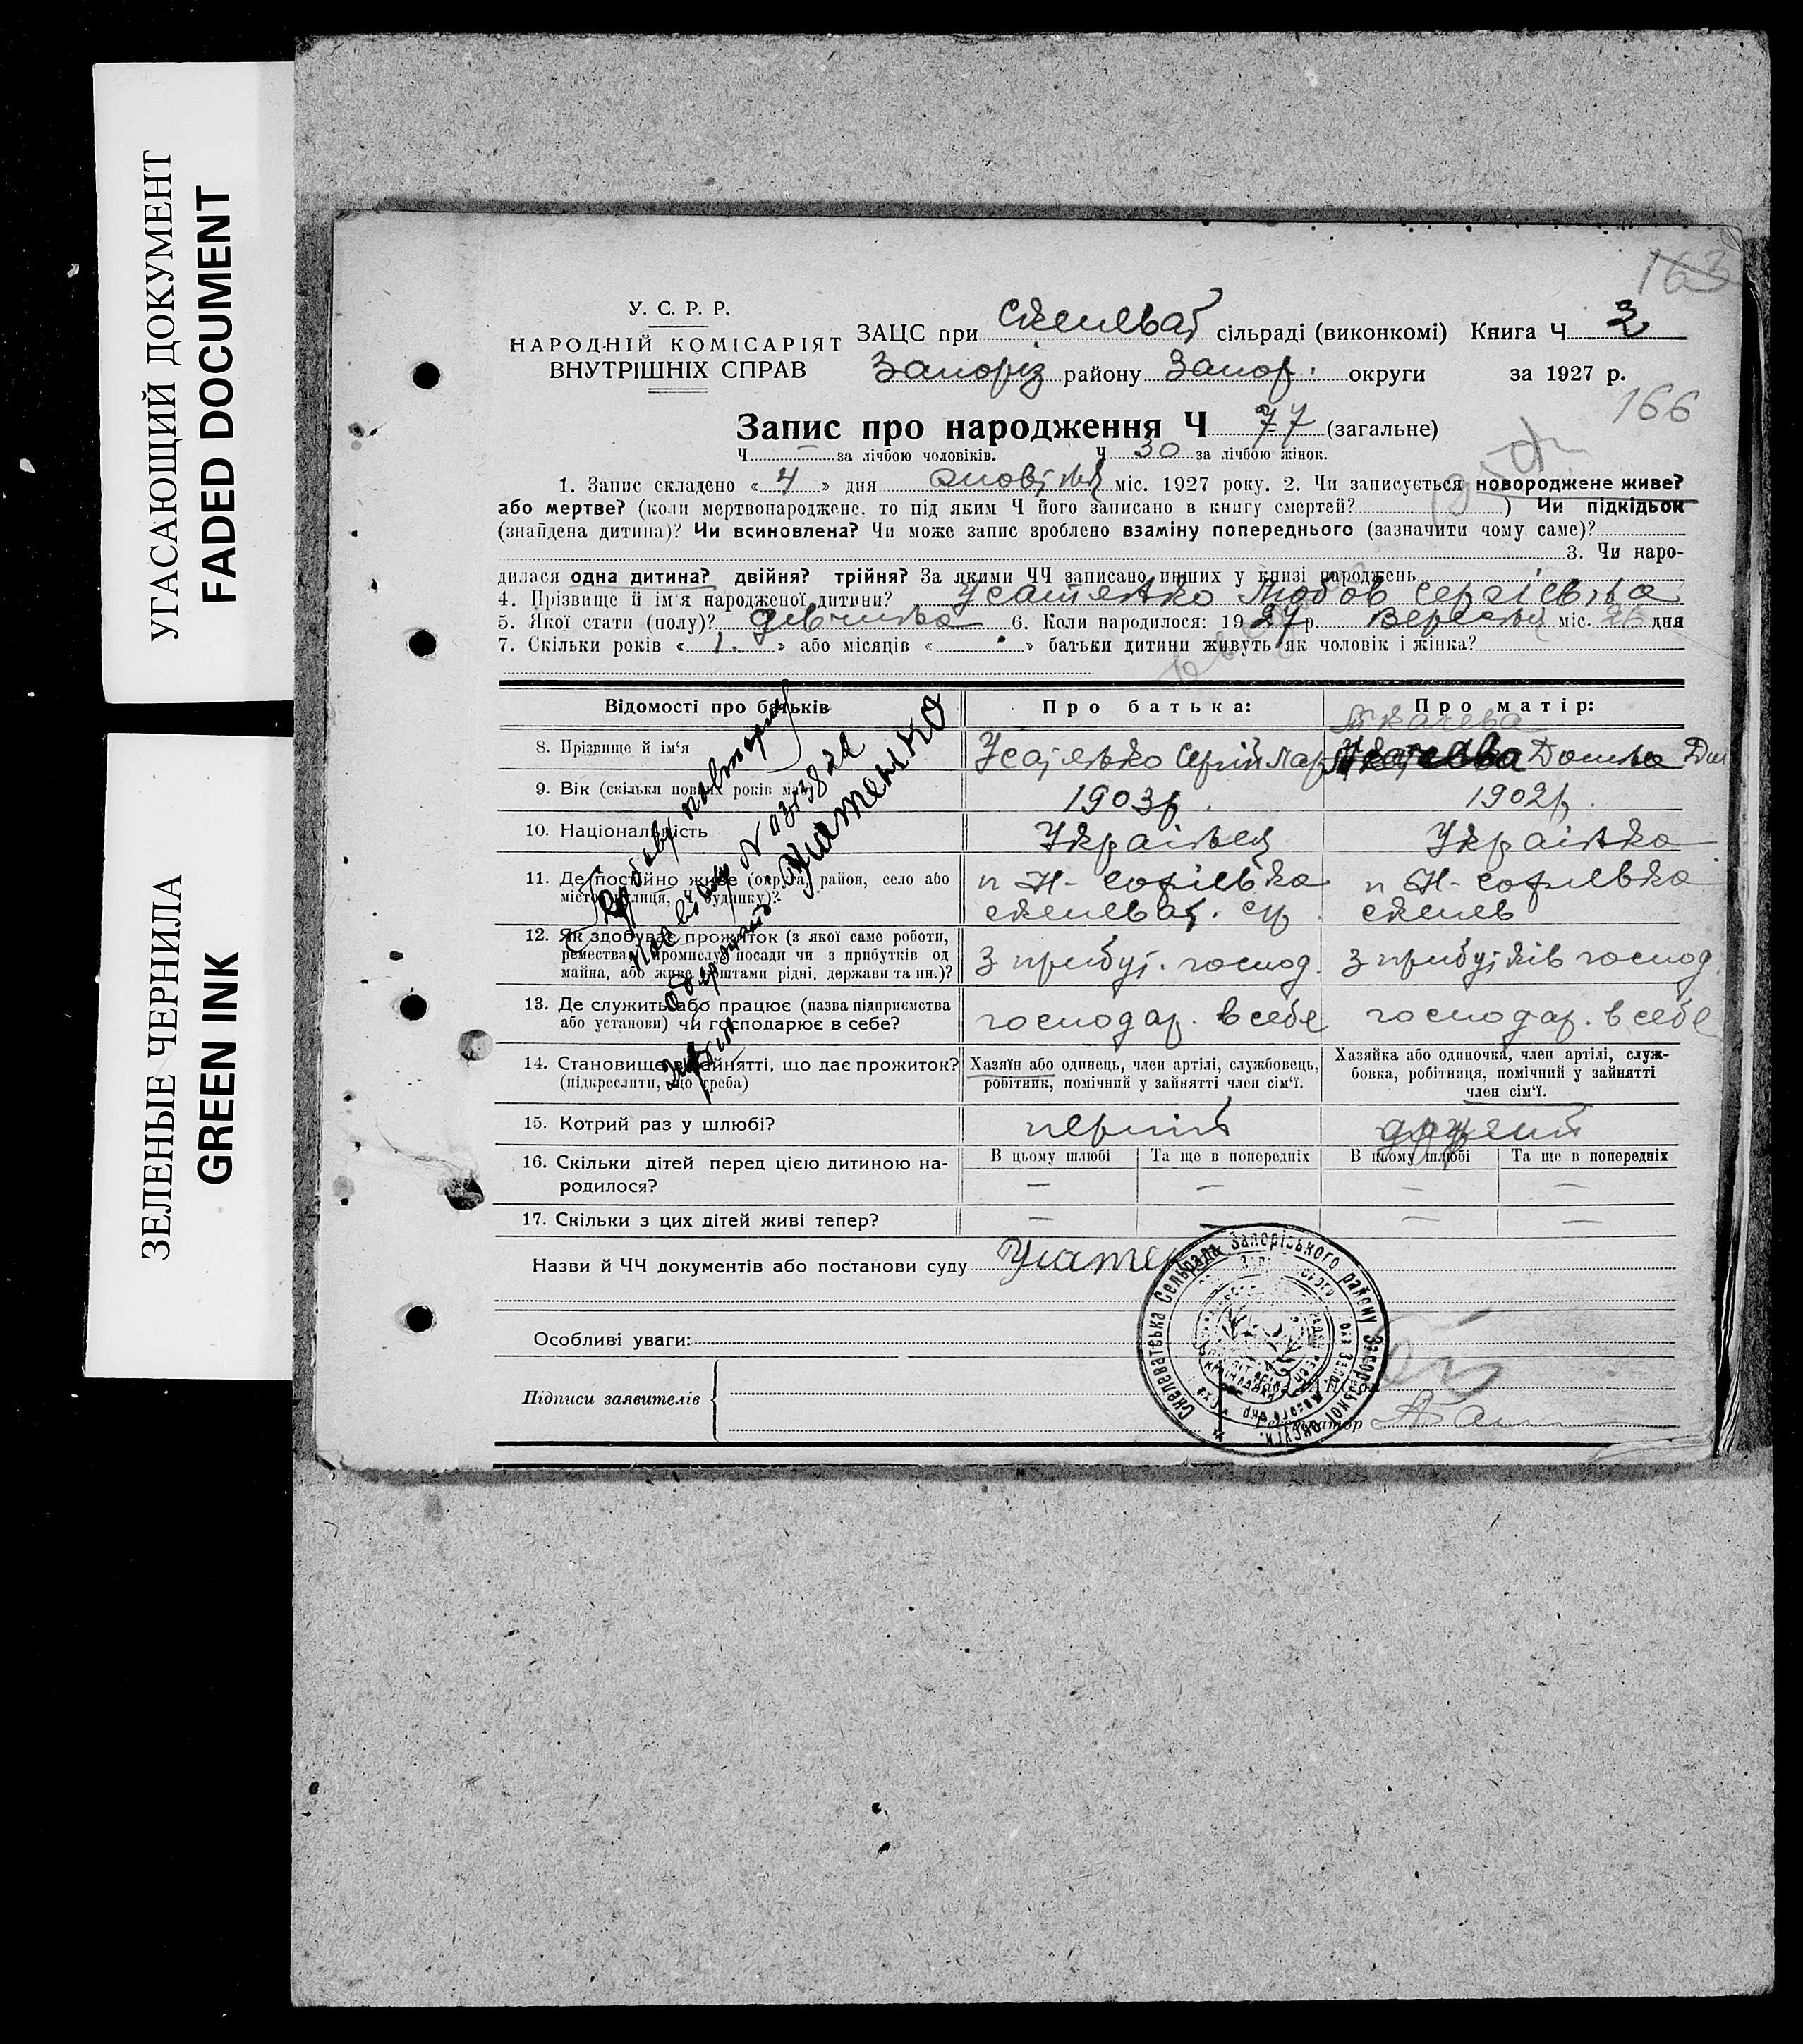 УГАСАЮЩИЙ ДОКУМЕНТ
FADED DOCUMENT
ЗЕЛЕНЫЕ ЧЕРНИЛА
GREEN INK
163
У. С. Р. Р.
НАРОДНІЙ КОМІСАРІЯТ
ВНУТРІШНІХ СПРАВ
ЗАЦС при Скелеват сільраді (виконкомі) Книга Ч 3
Запоріз району Запор. округи за 1927 р.
166
Запис про народження Ч 77 (загальне)
Ч — за лічбою чоловіків. Ч 30 за лічбою жінок.
1. Запис складено « 4 » дня жовтня міс. 1927 року. 2. Чи записується новороджене живе?
або мертве? (коли мертвонароджене, то під яким Ч його записано в книгу смертей? ) Чи підкідьок
(знайдена дитина)? Чи всиновлена? Чи може запис зроблено взаміну попереднього (зазначити чому саме)?
3. Чи наро-
дилася одна дитина? двійня? трійня? За якими ЧЧ записано инших у книзі народжень
4. Прізвище й ім'я народженої дитини? Усатенко Любов Сергієвна
5. Якої стати (полу)? Дівчина 6. Коли народилося: 1927 р. Вересня міс. 26 дня
7. Скільки років « 1. » або місяців « » батьки дитини живуть як чоловік і жінка?
Відомості про батьків Про батька: Про матір:
Ткачева
8. Прізвище й ім'я Усатенко Сергій Мар Домна
9. Вік (скільки повних років має) 1903р. 1902р.
10. Національність Українец Українка
11. Де постійно живе (округа, район, село або
місто, вулиця, Ч будинку)?
п Н-Софіевка п Н-Софиевка
скелеват. ср. скелев
12. Як здобуває прожиток (з якої саме роботи,
ремества, промислу, посади чи з прибутків од
майна, або живе коштами рідні, держави та ин.)?
З прибут. господ. З прибутків господ.
13. Де служить або працює (назва підприємства
або установи) чи господарює в себе?
господар. в себе господар. в себе
14. Становище в зайнятті, що дає прожиток?
(підкреслити, що треба)
Хазяїн або одинець, член артілі, службовець,
робітник, помічний у зайнятті член сім'ї.
Хазяйка або одиночка, член артілі, служ-
бовка, робітниця, помічний у зайнятті
член сім'ї.
15. Котрий раз у шлюбі? перший другий
16. Скільки дітей перед цією дитиною на-
родилося?
В цьому шлюбі Та ще в попередніх В цьому шлюбі Та ще в попередніх
— — — —
17. Скільки з цих дітей живі тепер? — — — —
Назви й ЧЧ документів або постанови суду
Особливі уваги:
Підписи заявителів
Скелеватська Сельрада Запорізького району Запорізької округи.
Усатенко